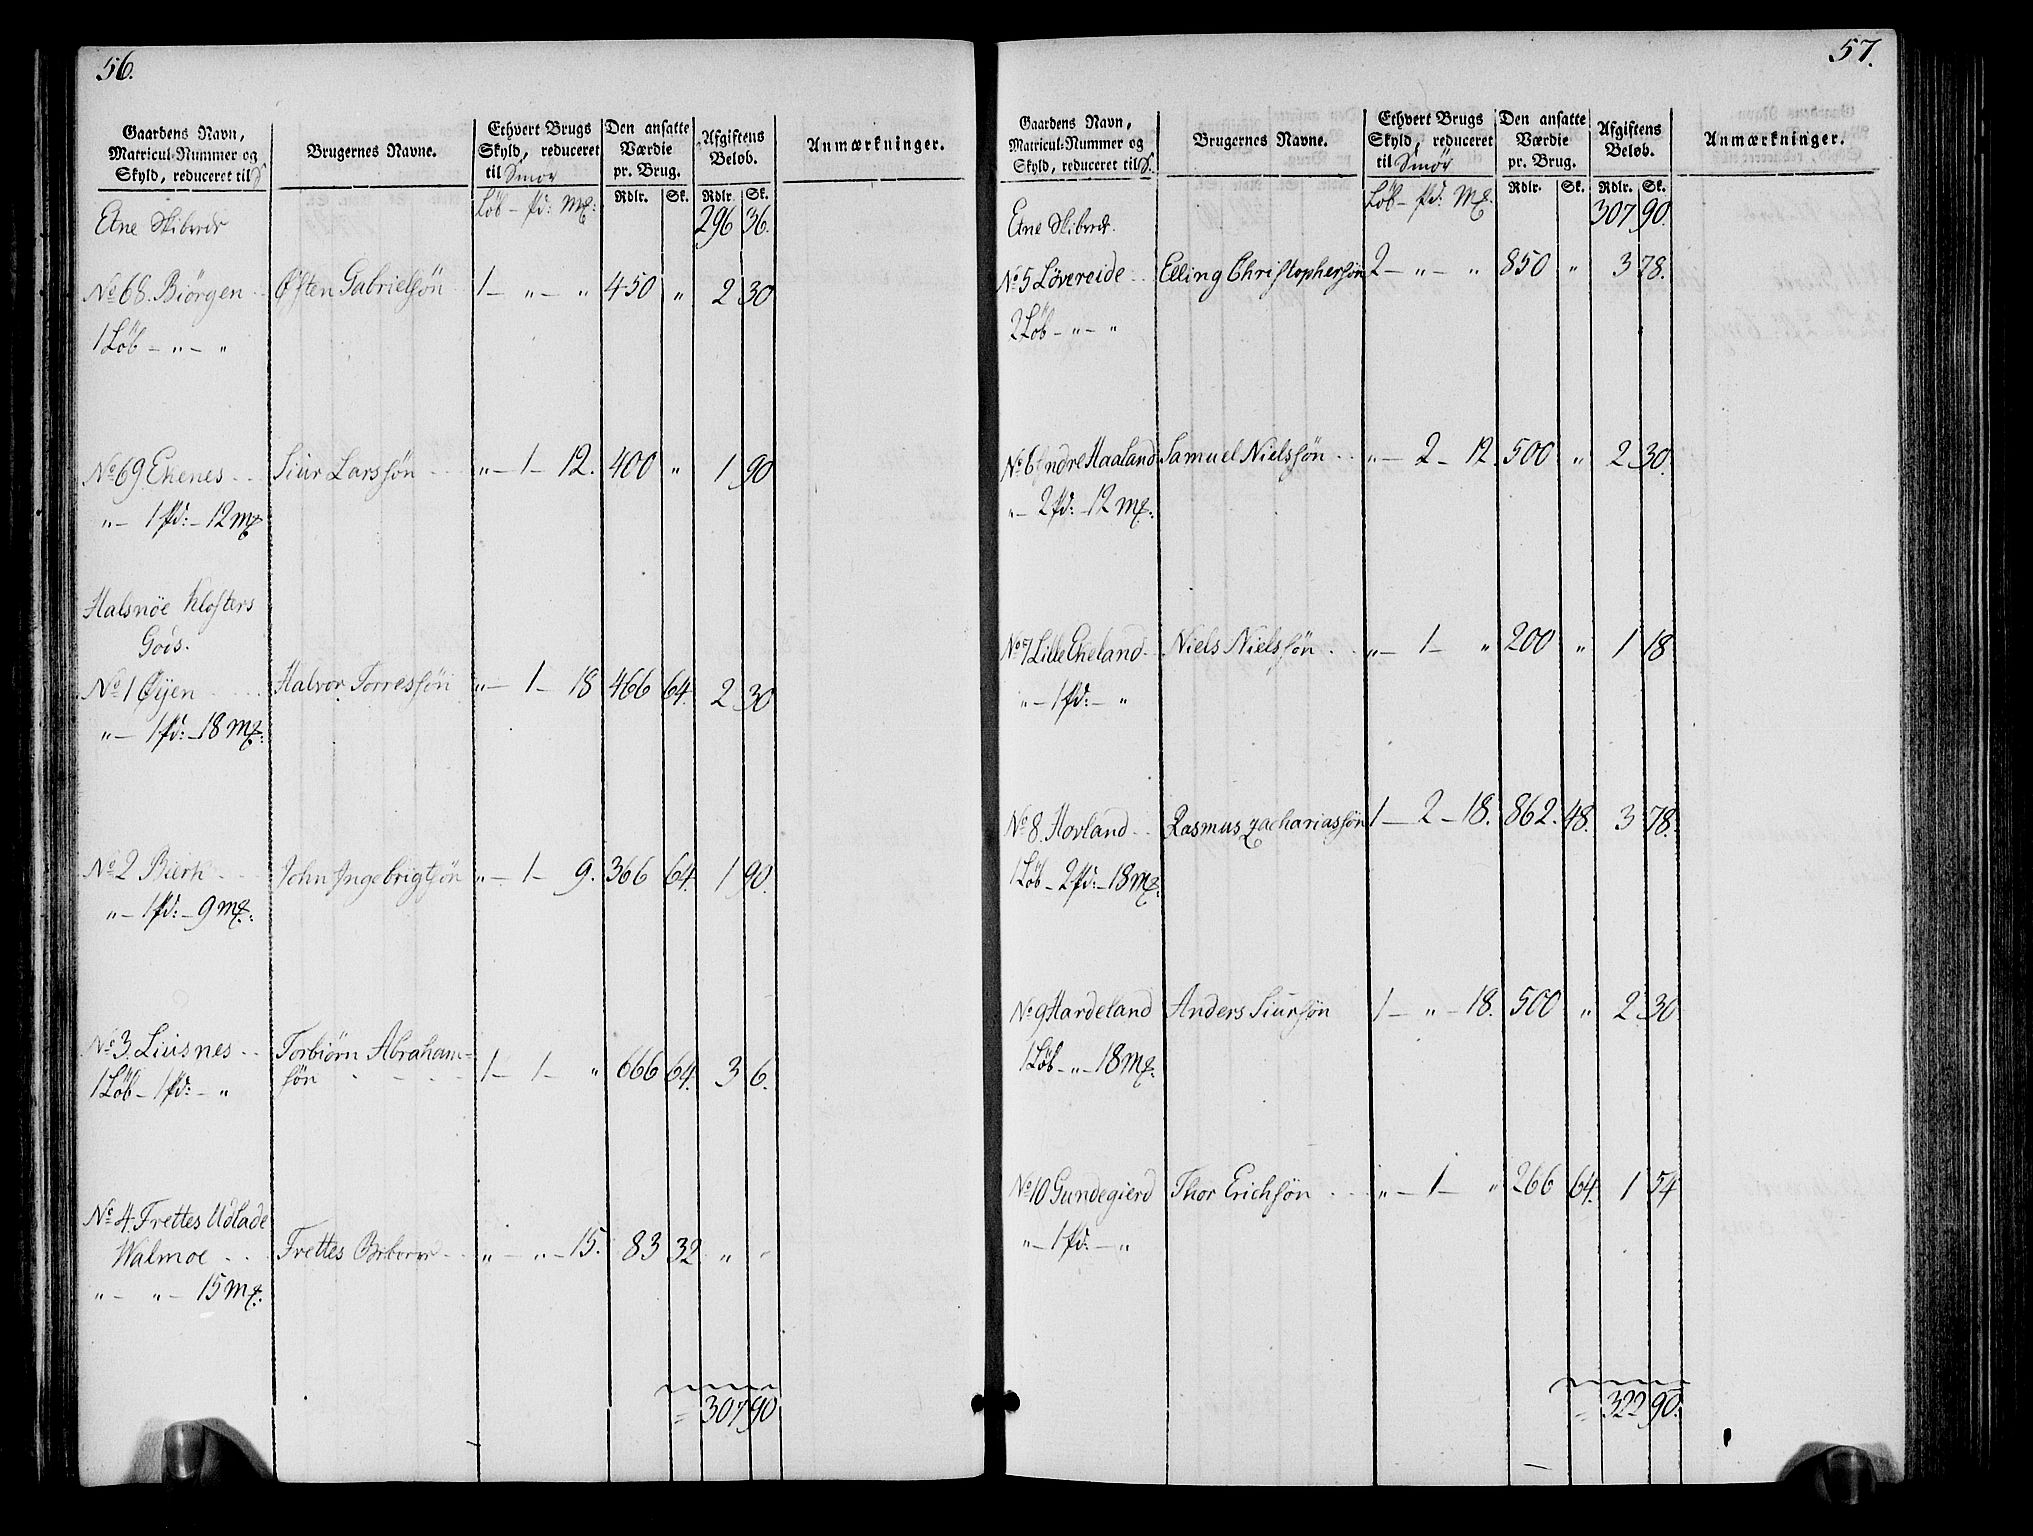 56.
Gaardens Navn, Matricul-Nummer og Skyld, reduceret til S | Brugernes Navne. | Ethvert Brugs Skyld, reduceret til Smör | Den ansatte Værdie pr. Brug. | Afgiftens Beløb. | Anmærkninger.
Löb – pd: Mk: | Rdlr. | Sk. | Rdlr. | Sk.
Etne Skibrede | 296 | 36.
No 68. Biørgen | Østen Gabrielsøn | 1 – „ – „ | 450 | „ | 2 | 30
1 Löb – „ – „
No 69 Ekenes | Siur Larssøn | „ – 1 – 12. | 400 | „ | 1 | 90
„ – 1 pd: – 12 mk
Halsnöe Klosters
Gods.
No 1 Øyen | Halvor Torressøn | „ – 1 – 18 | 466 | 64. | 2 | 30
„ – 1 pd: – 18 mk:
No 2 Bierk | John Ingebrigtsøn | „ – 1 – 9. | 366 | 64. | 1 | 90.
„ – 1 pd: – 9 mk:
No 3. Liusnes | Torbiørn Abraham=
1 Löb – 1 pd: – „ | søn | 1 – 1 – „ | 666 | 64. | 3 | 6.
No 4. Frettes Udlade
Walmoe | Frettes | „ – „ – 15. | 83 | 32 | „ | „
„ – „ – 15 mk:
= 307 | 90
57.
Gaardens Navn, Matricul-Nummer og Skyld, reduceret til S. | Brugernes Navne. | Ethvert Brugs Skyld, reduceret til Smör | Den ansatte Værdie pr. Brug. | Afgiftens Beløb. | Anmærkninger.
Löb – pd: Mk. | Rdlr. | Sk. | Rdlr. | Sk.
Etne Skibrede. | 307 | 90.
No 5 Lövereide | Elling Christophersøn | 2 – „ – „ | 850 | „ | 3 | 78.
2 Löb – „ – „
No 6 Indre Haaland | Samuel Nielssøn | „ – 2 – 12. | 500 | „ | 2 | 30.
„ – 2 pd: – 12 mk:
No 7 Lille Ekeland | Niels Nielssøn | „ – 1 – „ | 200 | „ | 1 | 18
„ – 1 pd: – „
No 8. Hovland | Rasmus Zachariassøn | 1 – 2 – 18. | 862. | 48. | 3 | 78.
1 Löb – 2 pd: – 18 mk:
No 9 Hardeland | Anders Siursøn | 1 – „ – 18. | 500 | „ | 2 | 30
1 Löb – „ – 18 mk:
No 10 Gundegierd | Thor Erichsøn | „ – 1 – „ | 266 | 64. | 1 | 54
„ – 1 pd: – „
= 322 | 90.